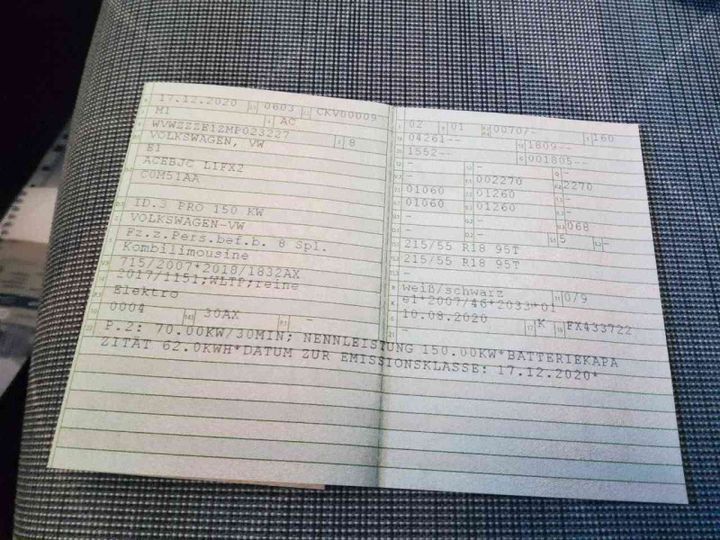 17.12.2020 0603 CKV00009
M1 AC
WVWZZZE1ZMP023227 8
VOLKSWAGEN, VW
E1
ACEBJC L1FX2
C0M51AA
ID.3 PRO 150 KW
VOLKSWAGEN-VW
Fz.z.Pers.bef.b. 8 Spl.
Kombilimousine
715/2007*2018/1832AX
2017/1151;WLTP;reine
Elektro
0004 30AX -
02 01 0070/- 160
04261-- 1809--
1552-- 001805--
- - -
- 002270 2270
01060 01260 -
01060 01260 -
- - 068
- 5 -
215/55 R18 95T
215/55 R18 95T
-
weiß/schwarz 0/9
e1*2007/46*2033*01
10.08.2020 K FX433722
-
P.2: 70.00KW/30MIN; NENNLEISTUNG 150.00KW*BATTERIEKAPA
ZITÄT 62.0KWH*DATUM ZUR EMISSIONSKLASSE: 17.12.2020*